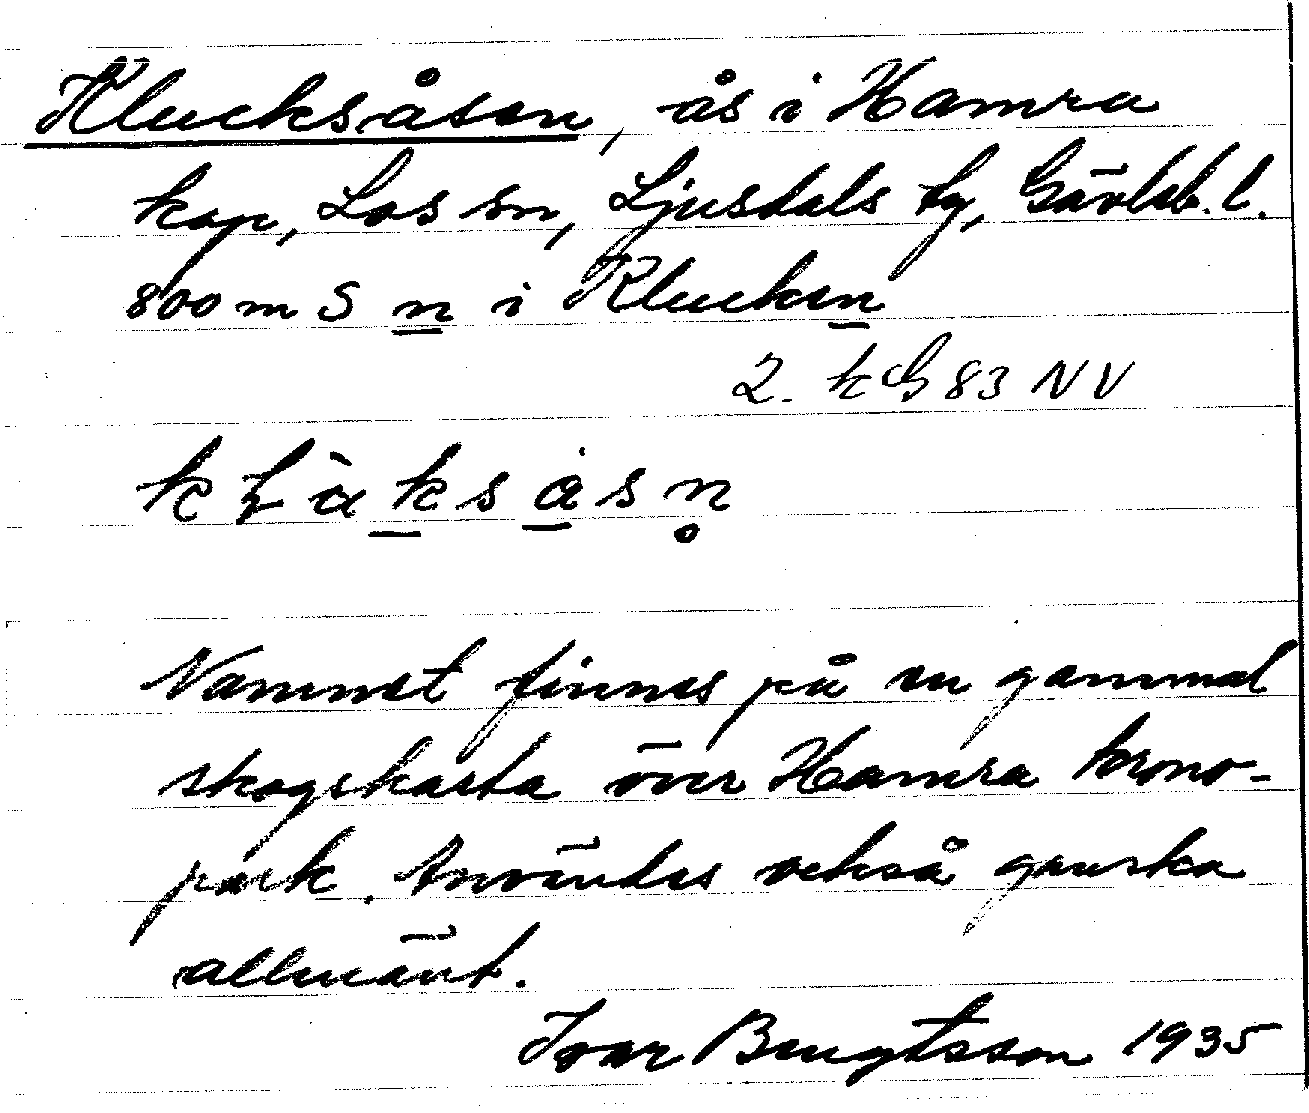 Klucksåsen, ås i Hamra
kap, Los sn, Ljusdals tg, Gävleb. l.
800 m S n i Klucken
2. kG 83 NV
Namnet finnes på en gammal
skogskarta över Hamra krono-
park. Användes också ganska
allmänt.
Ivar Bengtsson 1935